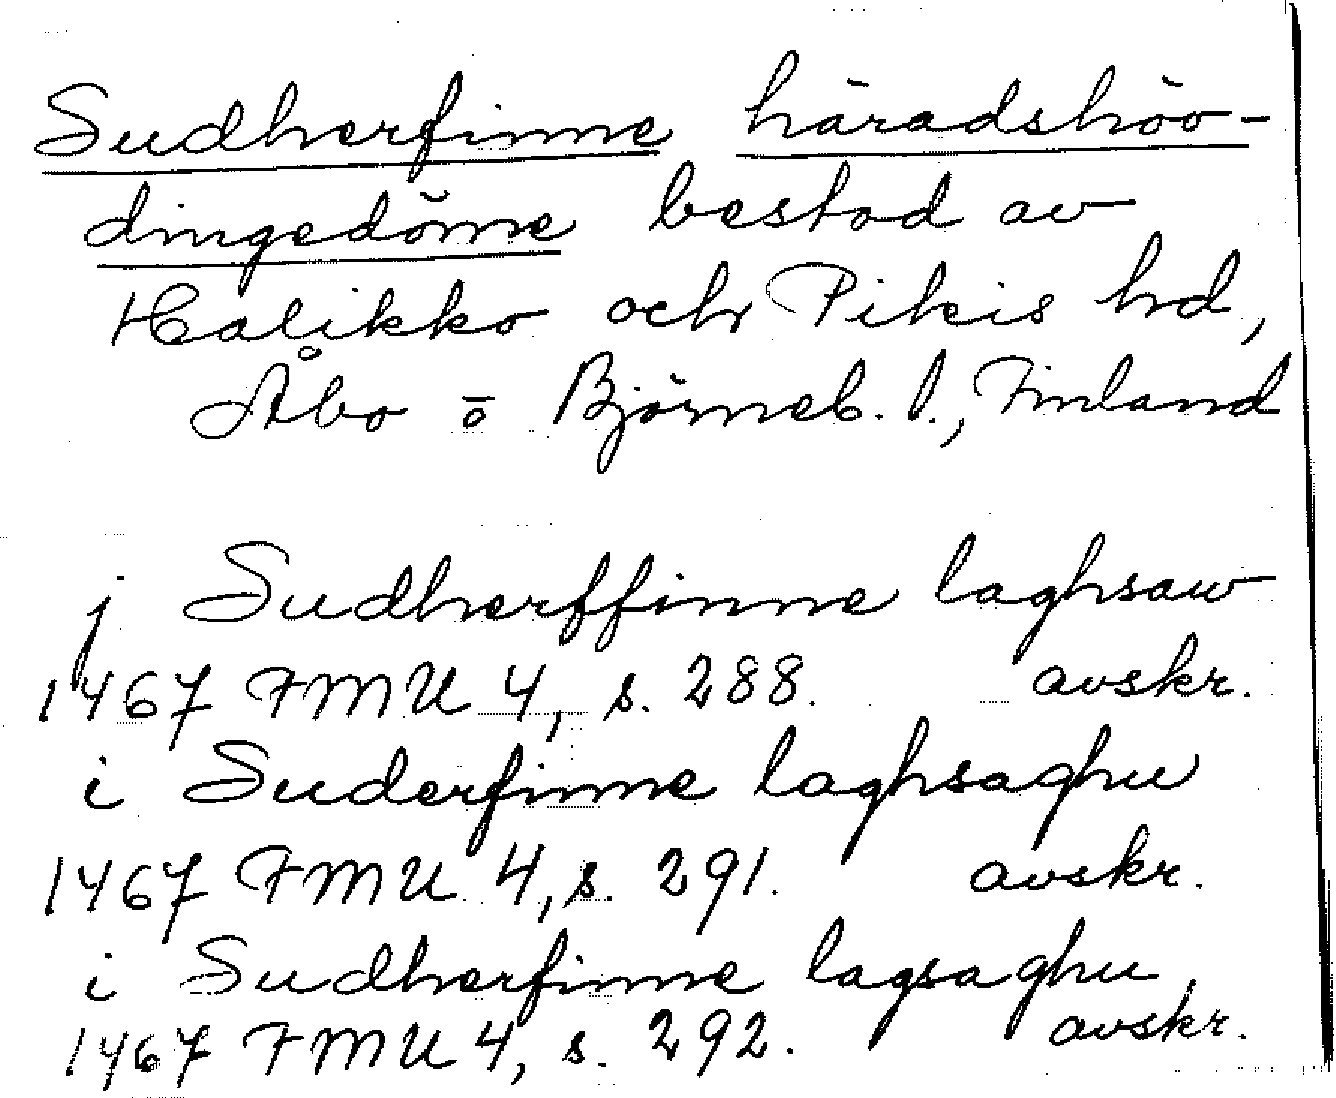 Sudherfinne häradshöv-
dingedöme bestod av
Halikko och Pikis hd,
Åbo o Björneb. l., Finland
j Sudherffinne laghsaw
1467 FMU 4, s. 288. avskr.
i Suderfinne laghsaghu
1467 FMU 4, s. 291. avskr.
i Sudherfinne lagsaghu,
1467 FMU 4, s. 292. avskr.